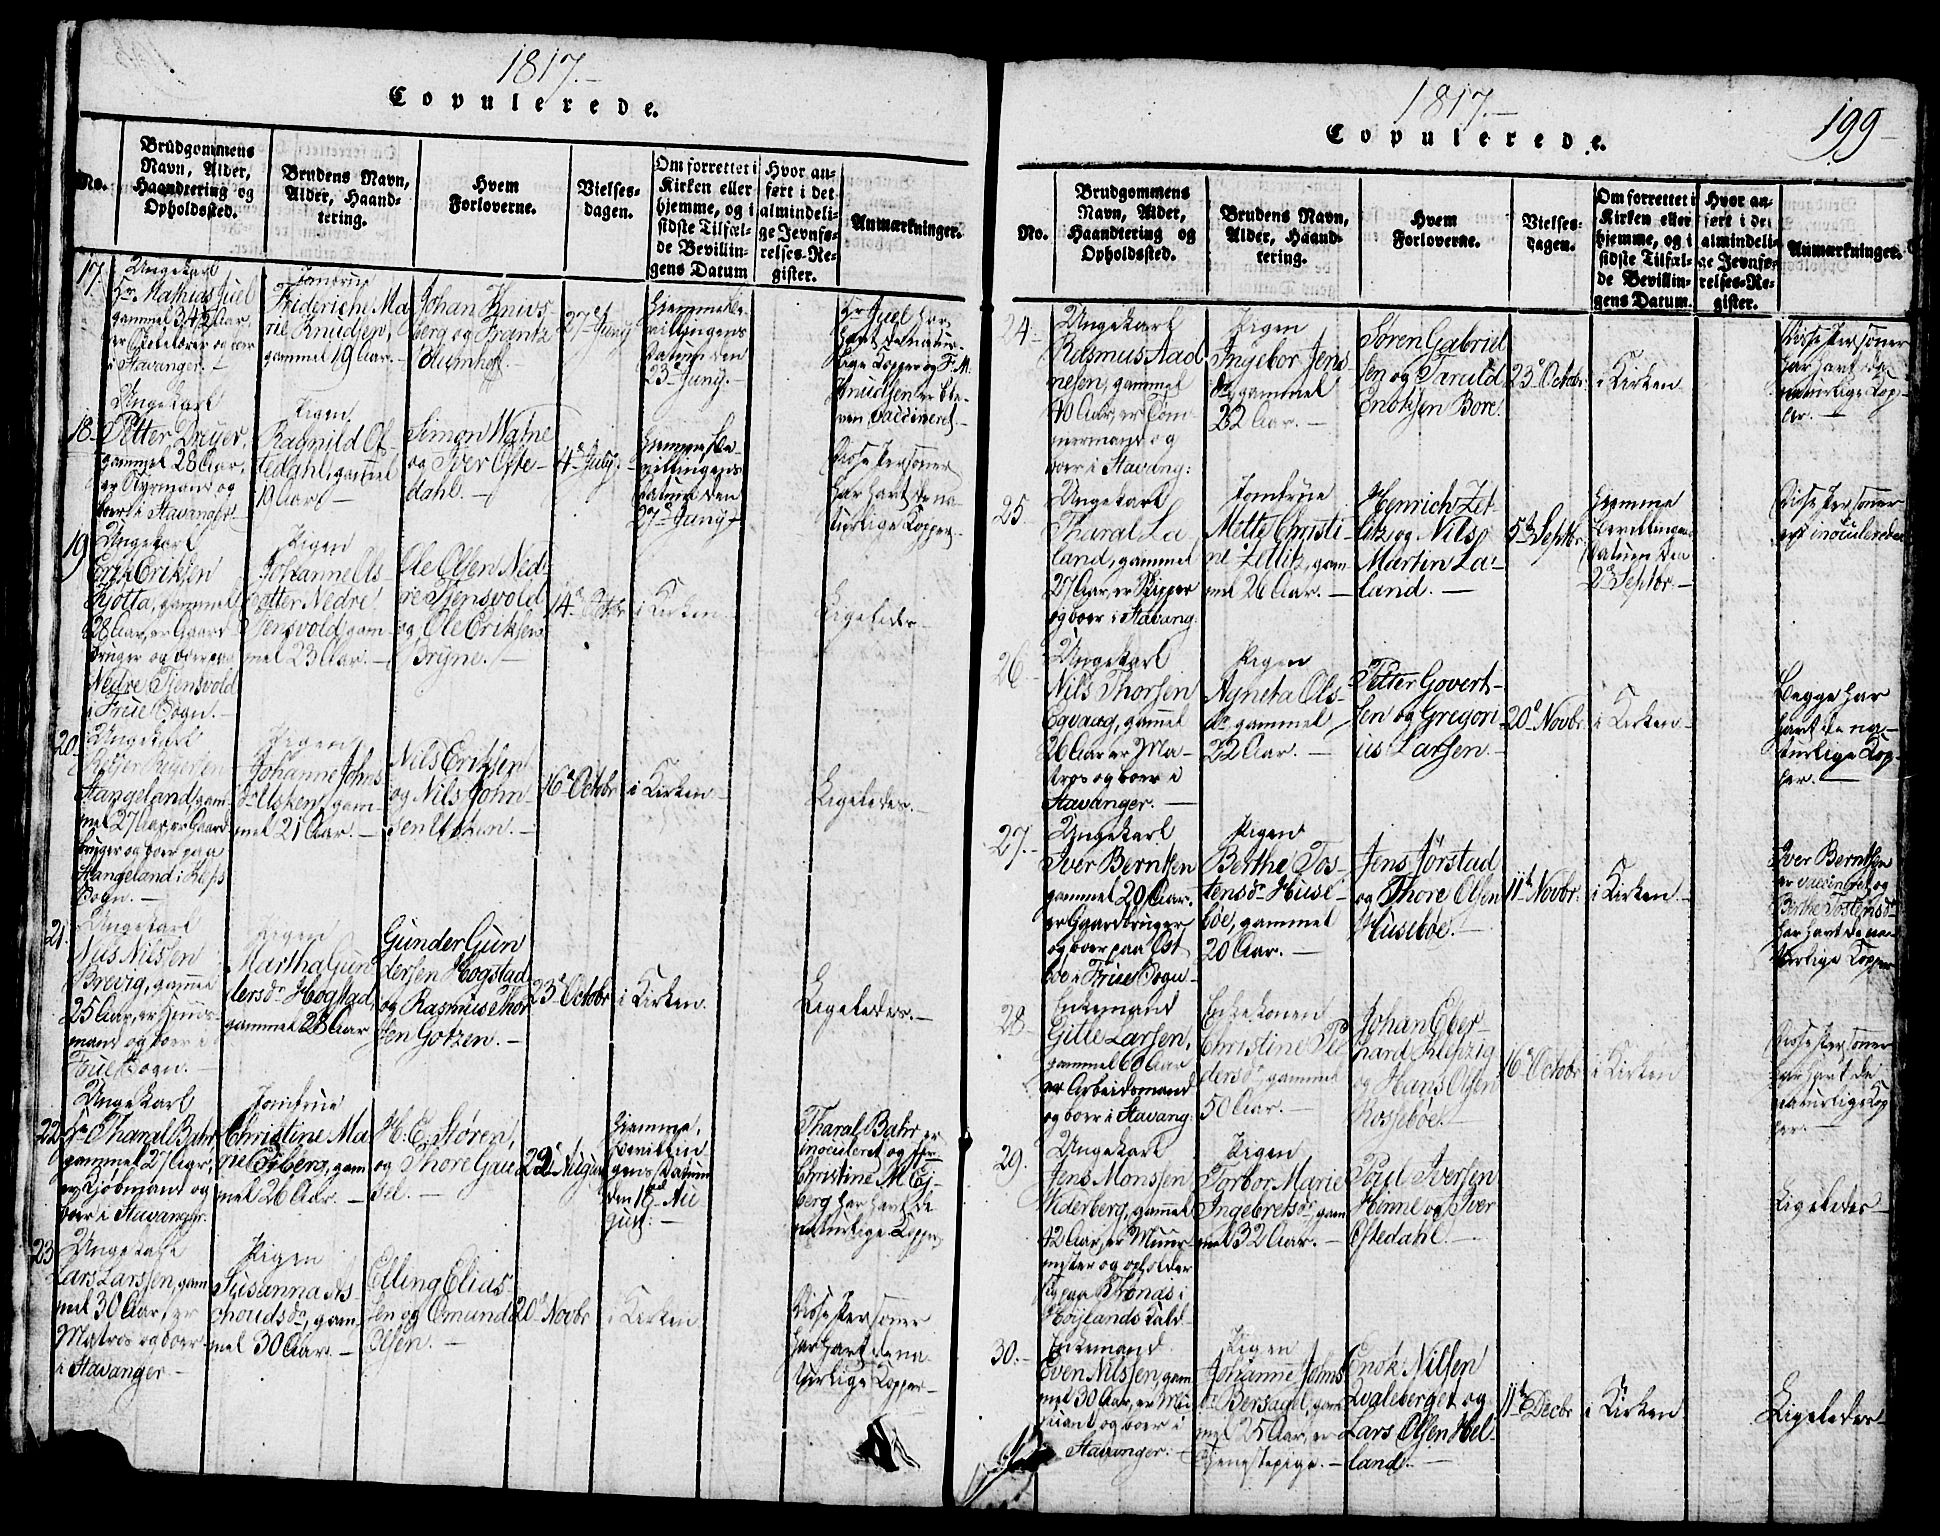 1817.-
Copulerede.
No.
Brudgommens
Navn, Alder,
Haandtering og
Opholdssted.
Brudens Navn,
Alder, Haand-
tering.
Hvem
Forloverne.
Vielses-
dagen.
Om forrettet i
Kirken eller
hjemme, og i
sidste Tilfæl-
de Bevillin-
gens Datum
Hvor an-
ført i det
almindeli-
ge Jevnfø-
relses-Re-
gister.
Anmærkninger.
17.
Ungekarl
Hr. Mathias Juel
gammel 34 Aar
i Stavanger. -
Jomfrue
Frideriche Ma
rie Knudsen,
gammel 19 Aar. -
Johan Knivs
berg og Frantz
27de Juny
Hjemme Be-
villingens
Datum den
23de Juny.
Hr Juel har
havt de natur-
lige Kopper og F: M.
Knudsen er ble-
ven vaccineret -
18.
Ungekarl
Petter Dreyer,
gammel 28 Aar,
er Styrmand og
boer i Stavanger -
Pigen
Ragnild Of-
tedahl, gammel
19 Aar -
Simon Walne
og Iver Ofte-
dahl. -
4de July
Hjemme, Be-
villingens
Datum den
27de Juny -
Disse Personer
har havt de na-
turlige Kopper -
19
Ungekarl
Erik Eriksen
Kjotta, gammel
28 Aar, er Gaard
bruger og boer paa
Nedre Tjensvold
i Frue Sogn. -
Pigen
Johanne Ols
datter Nedre
Tjensvold, gam-
mel 23 Aar. -
Ole Olsen Ned-
re Tjensvold
og Ole Eriksen
Bryne. -
14de Octbr
i Kirken
Ligeledes -
20.
Ungekarl
Reijer Reijersen
Stangeland, gam-
mel 27 Aar, er Gaard-
bruger og boer paa
Stangeland i Kleps
Sogn. -
Pigen
Johanne Johns
dr Utsken, gam-
mel 21 Aar. -
Nils Eriksen
og Nils John-
sen Utsken. -
16de Octobr
i Kirken -
Ligeledes. -
21.
Ungekarl
Nils Nilsen
Brevig, gammel
25 Aar, er Huus-
mand og boer i
Frue Sogn. -
Pigen
Martha Gun
dersdr Hogstad,
gammel 28 Aar
Gunder Gun
dersen Hogstad
og Rasmus Thor
sen Gotzen. -
23de Octobr
i Kirken.
Ligeledes. -
22
Ungekarl
Hr Tharal Bahr
gammel 27 Aar,
er Kjøbmand og
boer i Stavanger.
Jomfrue
Christine Ma
rie Ejberg, gam
mel 26 Aar. -
H: E. Støren,
og Thore Gau
sel. -
22de August
Hjemme,
Bevillin
gens Datum
den 18de Au
gust. -
Tharal Bahr er
inoculeret og
Christine M. Ej-
berg har havt de
naturlige Kopper
23
Ungekarl
Lars Larsen, gam
mel 30 Aar, er
Matros og boer
i Stavanger -
Pigen
Susanna As
choudsdr, gam-
mel 30 Aar. -
Elling Elias-
sen og Omund
Olsen. -
20de Novbr
i Kirken
Disse Personer
har havt de na-
turlige Kopper -
1817.-
Copulerede.
199-
No.
Brudgommens
Navn, Alder,
Haandtering og
Opholdssted.
Brudens Navn,
Alder, Haand-
tering.
Hvem
Forloverne.
Vielses-
dagen.
Om forrettet i
Kirken eller
hjemme, og i
sidste Tilfæl-
de Bevillin-
gens Datum.
Hvor an-
ført i det
almindeli-
ge Jevnfø-
relses-Re-
gister.
Anmærkninger.
24.
Ungekarl
Rasmus Aad
nesen, gammel
40 Aar, er Tøm-
mermand og
boer i Stavang:
Pigen
Ingebor Jens
dr, gammel
22 Aar. -
Søren Gabriel
sen og Taruld
Enoksen Bore.
23de Octobr:
i Kirken
Disse Personer
har havt de
naturlige Kop-
per. -
25.
Ungekarl
Tharal La
land, gammel
27 Aar, er Skipper
og boer i Stavang:
Jomfrue
Mette Christi-
ne Zetlitz, gam-
mel 26 Aar. -
Henrich Zet
litz og Nils
Martin La-
land. -
5te Septbr
Hjemme
Bevillingens
Datum den
2de Septbr. -
Disse Personer
ere inoculerede
26
Ungekarl
Nils Thorsen
Egvaag, gammel
26 Aar er Ma-
tros og boer i
Stavanger. -
Pigen
Agneta Ols-
dr gammel
22 Aar. -
Petter Govert-
sen og Gregori-
us Larsen. -
20de Novbr
i Kirken -
Begge har
havt de na-
turlige Kop-
per. -
27. -
Ungekarl
Iver Berntsen
gammel 20 Aar.
er Gaardbruger
og boer paa Øst
boe i Frue Sogn -
Pigen
Berthe Tos-
tensdr Huse-
boe, gammel
20 Aar. -
Jens Jørstad
og Thore Olsen
Huseboe. -
11te Novbr:
i Kirken. -
Iver Berntsen
er vaccineret og
Berthe Tostensdr
har havt de na-
turlige Kopper
28
Enkemand
Gitle Larsen,
gammel 60 Aar
er Arbeidsmand
og boer i Stavang:
Enkekonen
Christine Pe
dersdr, gammel
50 Aar. -
Johan Eber-
hard Kleizig
og Hans Olsen
Rosseboe. -
16de Octobr
i Kirken
Disse Personer
har havt de
naturlige Kop
per. -
29.
Ungekarl
Jens Monssen
Wederberg, gammel
42 Aar, er Muur-
mester og opholder
sig paa Tronæs i
Høylands Kald. -
Pigen
Torbor Marie
Ingebretsdr, gam
mel 32 Aar. -
Poul Iversen
Hinne og Iver
Oftedahl. -
Ligeledes
30. -
Enkemand
Even Nilssen, gam
mel 30 Aar, er Mu
sicant og boer i
Stavanger. -
Pigen
Johanne Johns
dr Bersagel, gam
mel 25 Aar, er
Tjenestepige. -
Enok Nilsen
Qvaleberget og
Lars Olsen Hel-
land. -
11te Decbr
i Kirken
Ligeledes -